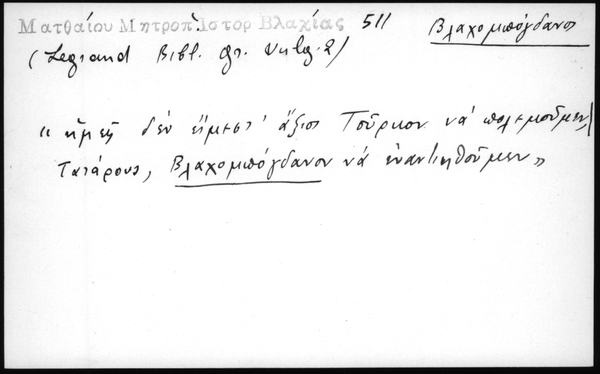 Ματθαίου Μητροπ. Ἱστορ Βλαχίας 511 Βλαχομπόγδανοι
(Legrand Bibl. gr. vulg. 2)
« ἡμεῖς δὲν εἴμεστ' ἄξιοι Τοῦρκον νὰ πολεμοῦμεν,
Τατάρους, Βλαχομπόγδανον νὰ ἐναντιηθοῦμεν »